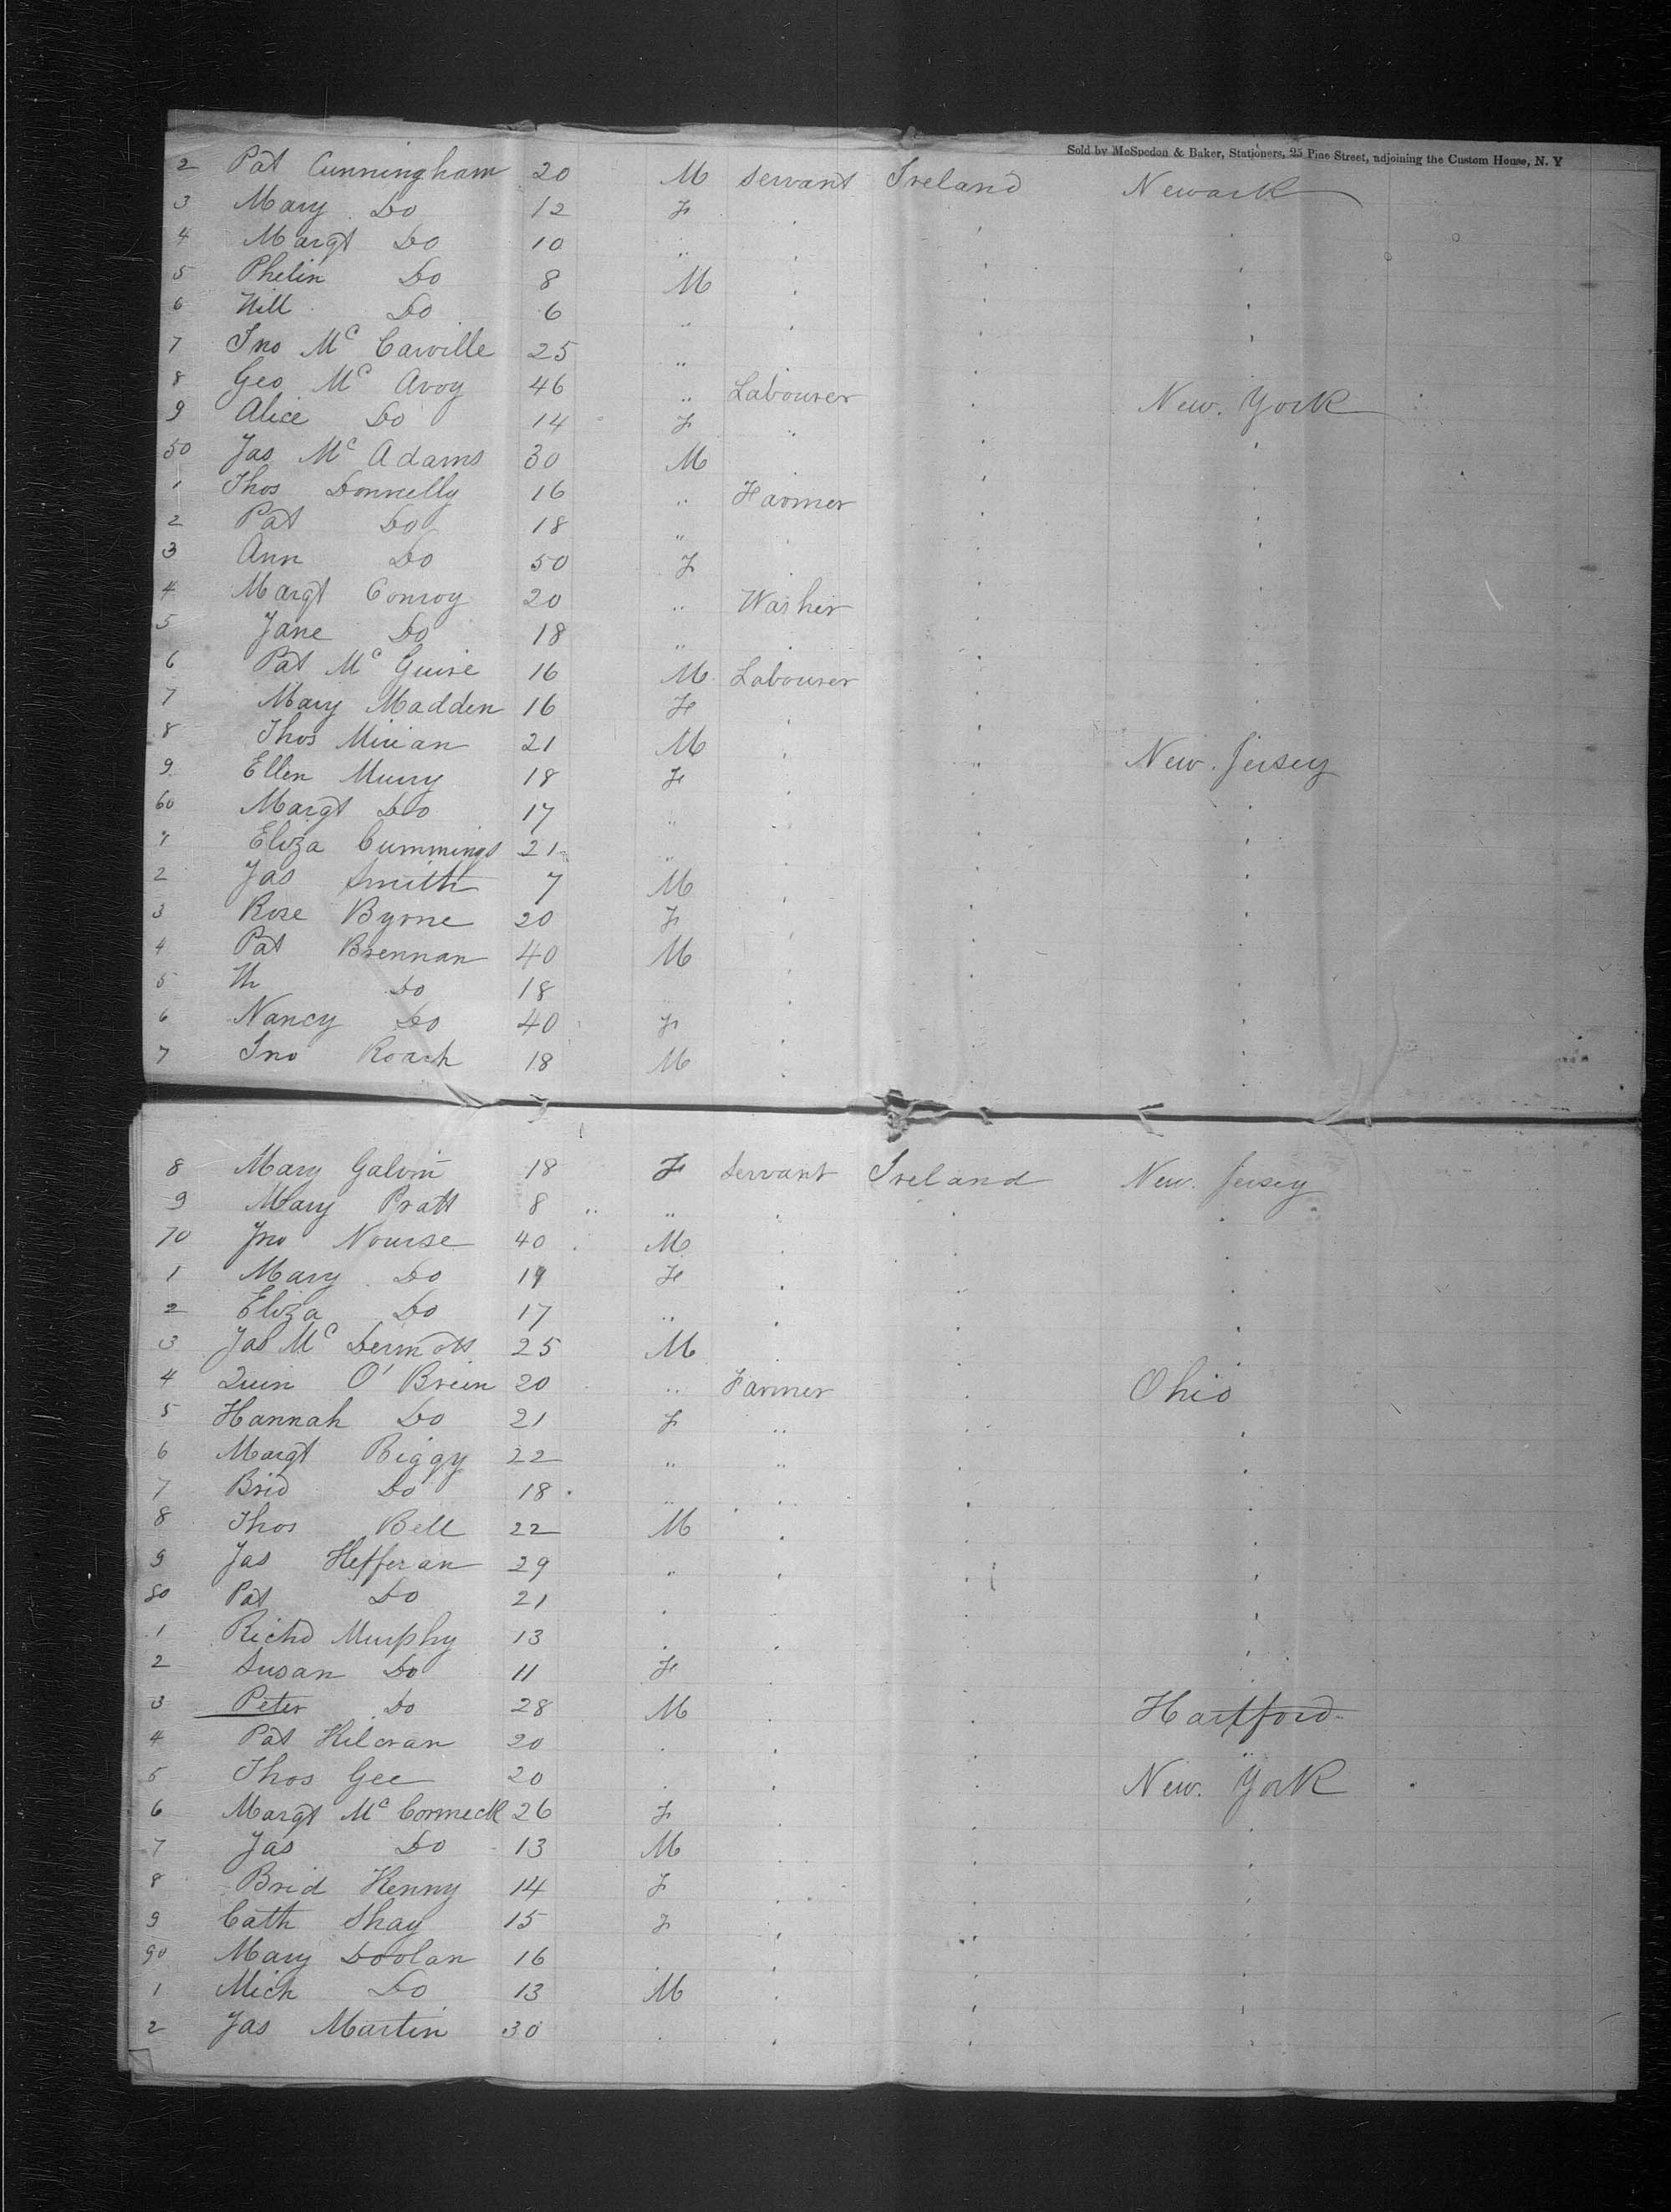 Sold by McSpedon & Baker, Stationers, 25 Pine Street, adjoining the Custom House, N. Y
2 Pat Cunningham 20 M Servant Ireland Newark
3 Mary Do 12 F
4 Margt Do 10 "
5 Phelin Do 8 M
6 Will Do 6 "
7 Jno Mc Carville 25 "
8 Geo Mc Avoy 46 " Labourer New York
9 Alice Do 14 F "
50 Jas Mc Adams 30 M
1 Thos Donnelly 16 " Farmer
2 Pat Do 18 "
3 Ann Do 50 F
4 Margt Conroy 20 " Washer
5 Jane Do 18 "
6 Pat Mc Guire 16 M Labourer
7 Mary Madden 16 F
8 Thos 21 M " New Jersey
9 Ellen Murry 18 F
60 Margt Do 17 "
1 Eliza Cummings 21 "
2 Jas Smith 7 M
3 Rose Byrne 20 F
4 Pat Brennan 40 M
5 Do 18
6 Nancy Do 40 F
7 Jno Roach 18 M
8 Mary Galvin 18 F Servant Ireland New Jersey
9 Mary Pratt 8 " "
70 Jno Nourse 40 M
1 Mary Do 19 F
2 Eliza Do 17 "
3 Jas Mc Dermott 25 M
4 Quin O' Brein 20 " Farmer Ohio
5 Hannah Do 21 F "
6 Margt Biggy 22 " "
7 Brid Do 18 "
8 Thos Bell 22 M
9 Jas Hefferan 29 "
80 Pat Do 21
1 Richd Murphy 13
2 Susan Do 11 F
3 Peter Do 28 M Hartford
4 Pat Kilcran 20 "
5 Thos Gee 20 New York
6 Margt Mc Cormeck 26 F
7 Jas Do 13 M
8 Brid Kenny 14 F
9 Cath Shay 15 F
90 Mary Doolan 16
1 Mich Do 13 M
2 Jas Martin 30